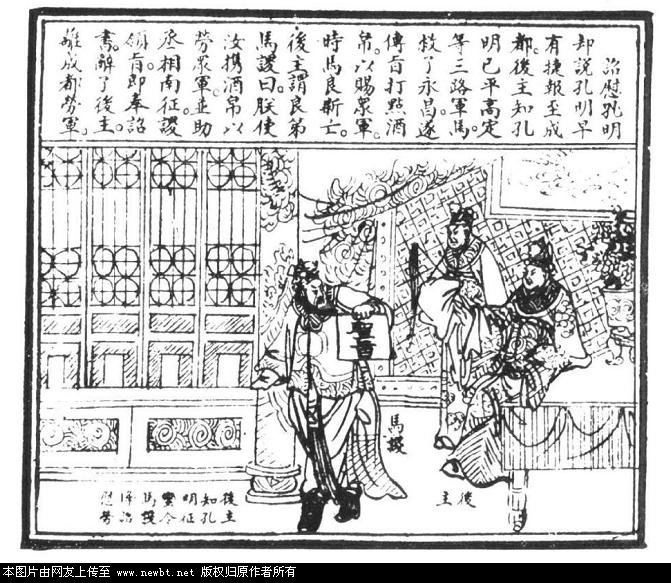 詔慰孔明
却説孔明早
有捷報至成
都。後主知孔
明已平高定
等三路軍馬。
救了永昌。遂
傳旨打點酒
帛。以賜衆軍。
時馬良新亡。
後主謂良弟
馬謖曰。朕使
汝携酒帛以
勞衆軍。並助
丞相南征。謖
領旨。即奉詔
書。辭了後主。
離成都勞軍。
聖旨
馬謖
後主
後主
知孔
明征
蠻令
馬謖
降詔
慰勞
本图片由网友上传至 www.newbt.net 版权归原作者所有